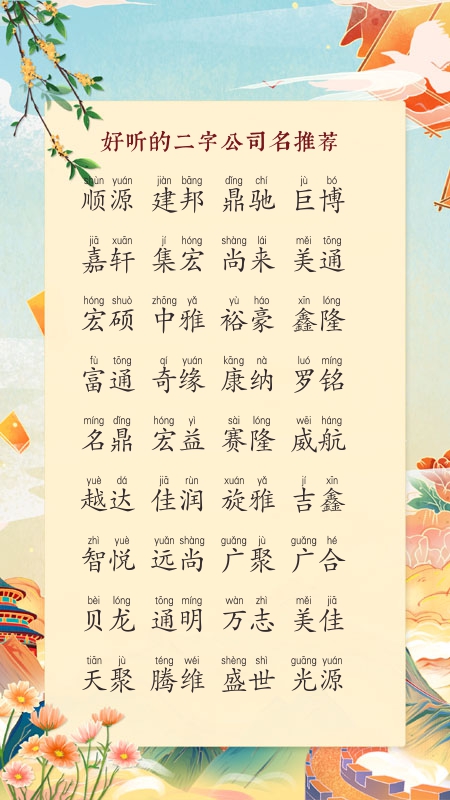 好听的二字公司名推荐
shùn yuán jiàn bāng dǐng chí jù bó
顺源 建邦 鼎驰 巨博
jiā xuān jí hóng shàng lái měi tōng
嘉轩 集宏 尚来 美通
hóng shuò zhōng yǎ yù háo xīn lóng
宏硕 中雅 裕豪 鑫隆
fù tōng qí yuán kāng nà luó míng
富通 奇缘 康纳 罗铭
míng dǐng hóng yì sài lóng wēi háng
名鼎 宏益 赛隆 威航
yuè dá jiā rùn xuán yǎ jí xīn
越达 佳润 旋雅 吉鑫
zhì yuè yuǎn shàng guǎng jù guǎng hé
智悦 远尚 广聚 广合
bèi lóng tōng míng wàn zhì měi jiā
贝龙 通明 万志 美佳
tiān jù téng wéi shèng shì guāng yuán
天聚 腾维 盛世 光源